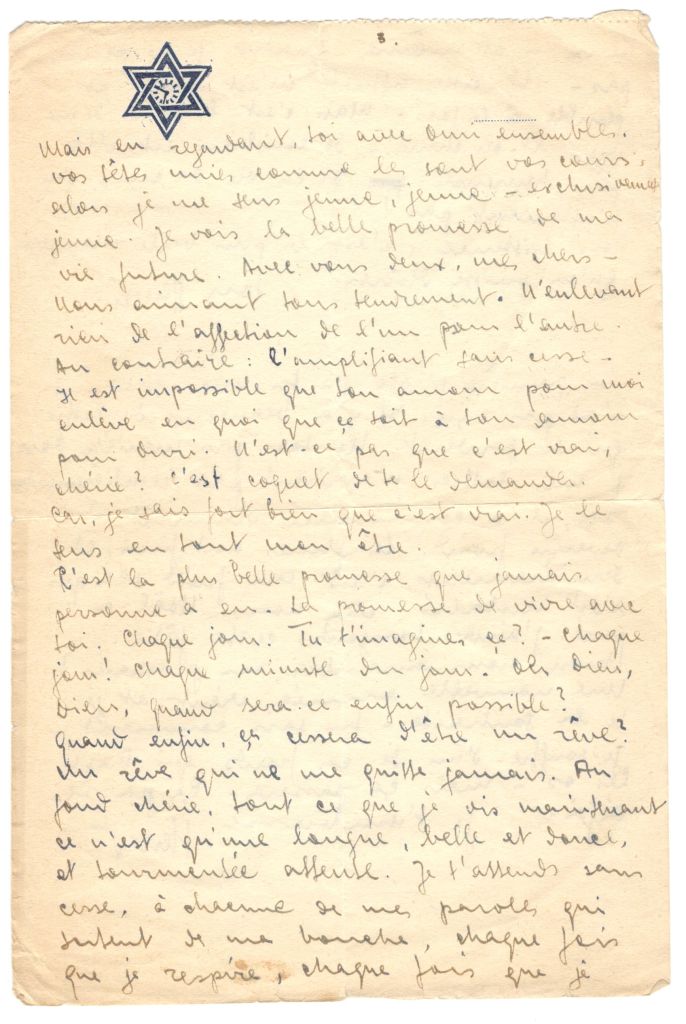 3.
Mais en regardant, toi avec Ouri ensembles.
vos têtes unies comme le sont vos cœurs,
alors je me sens jeune, jeune - exclusivement
jeune. Je vois la belle promesse de ma
vie future. Avec vous deux, mes chers -
Nous aimant tous tendrement. N'enlevant
rien de l'affection de l'un pour l'autre.
Au contraire : l'amplifiant sans cesse -
Il est impossible que ton amour pour moi
enlève en quoi que ce soit à ton amour
pour Ouri. N'est-ce pas que c'est vrai,
chérie? C'est coquet de te le demander.
Car, je sais fort bien que c'est vrai. Je le
sens en tout mon être.
C'est la plus belle promesse que jamais
personne a eu. La promesse de vivre avec
toi. Chaque jour. Tu t'imagines ça? - Chaque
jour! Chaque minute du jour. Oh Dieu,
Dieu, quand sera-ce enfin possible?
Quand enfin, ça cessera d'être un rêve?
Un rêve qui ne me quitte jamais. Au
fond chérie, tout ce que je vis maintenant
ce n'est qu'une longue, belle et douce,
et tourmentée attente. Je t'attends sans
cesse, à chacune de mes paroles qui
sortent de ma bouche, chaque fois
que je respire, chaque fois que je